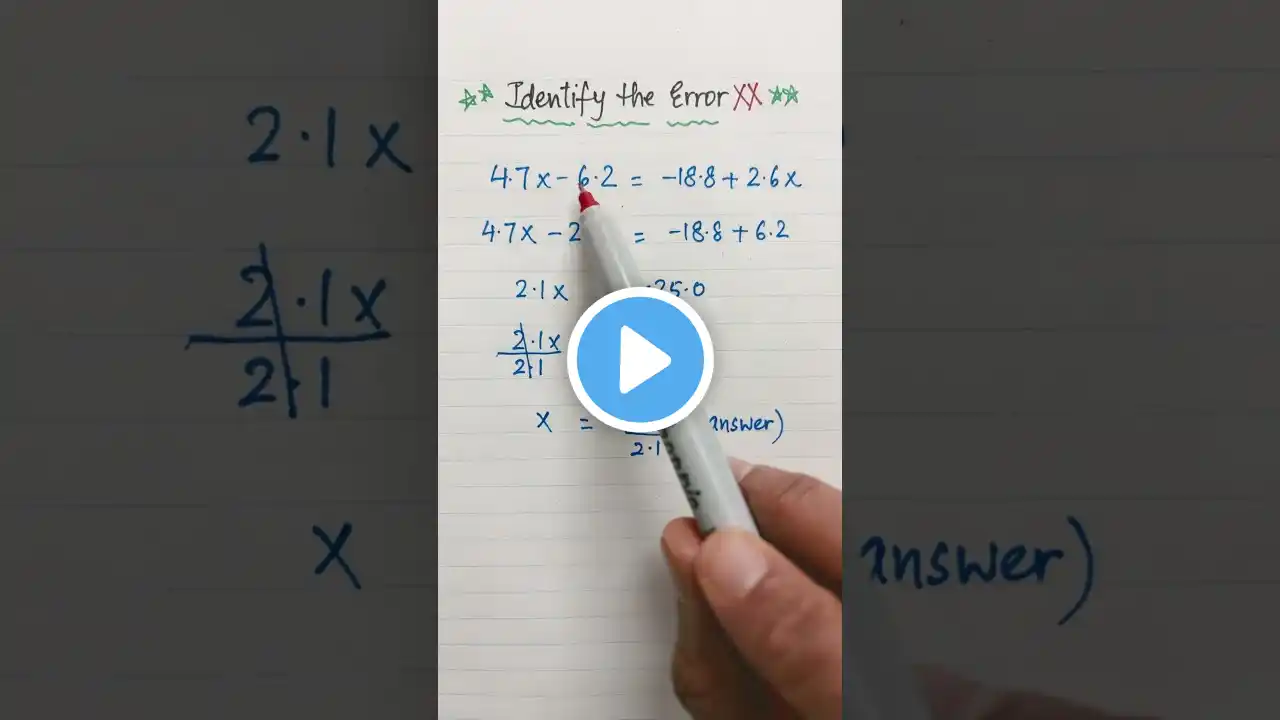 ** Identify the Error XX **
4.7x - 6.2 = -18.8 + 2.6x
4.7x - 2 = -18.8 + 6.2
2.1x 25.0
2.1x
2.1
x =
2.1
answer)